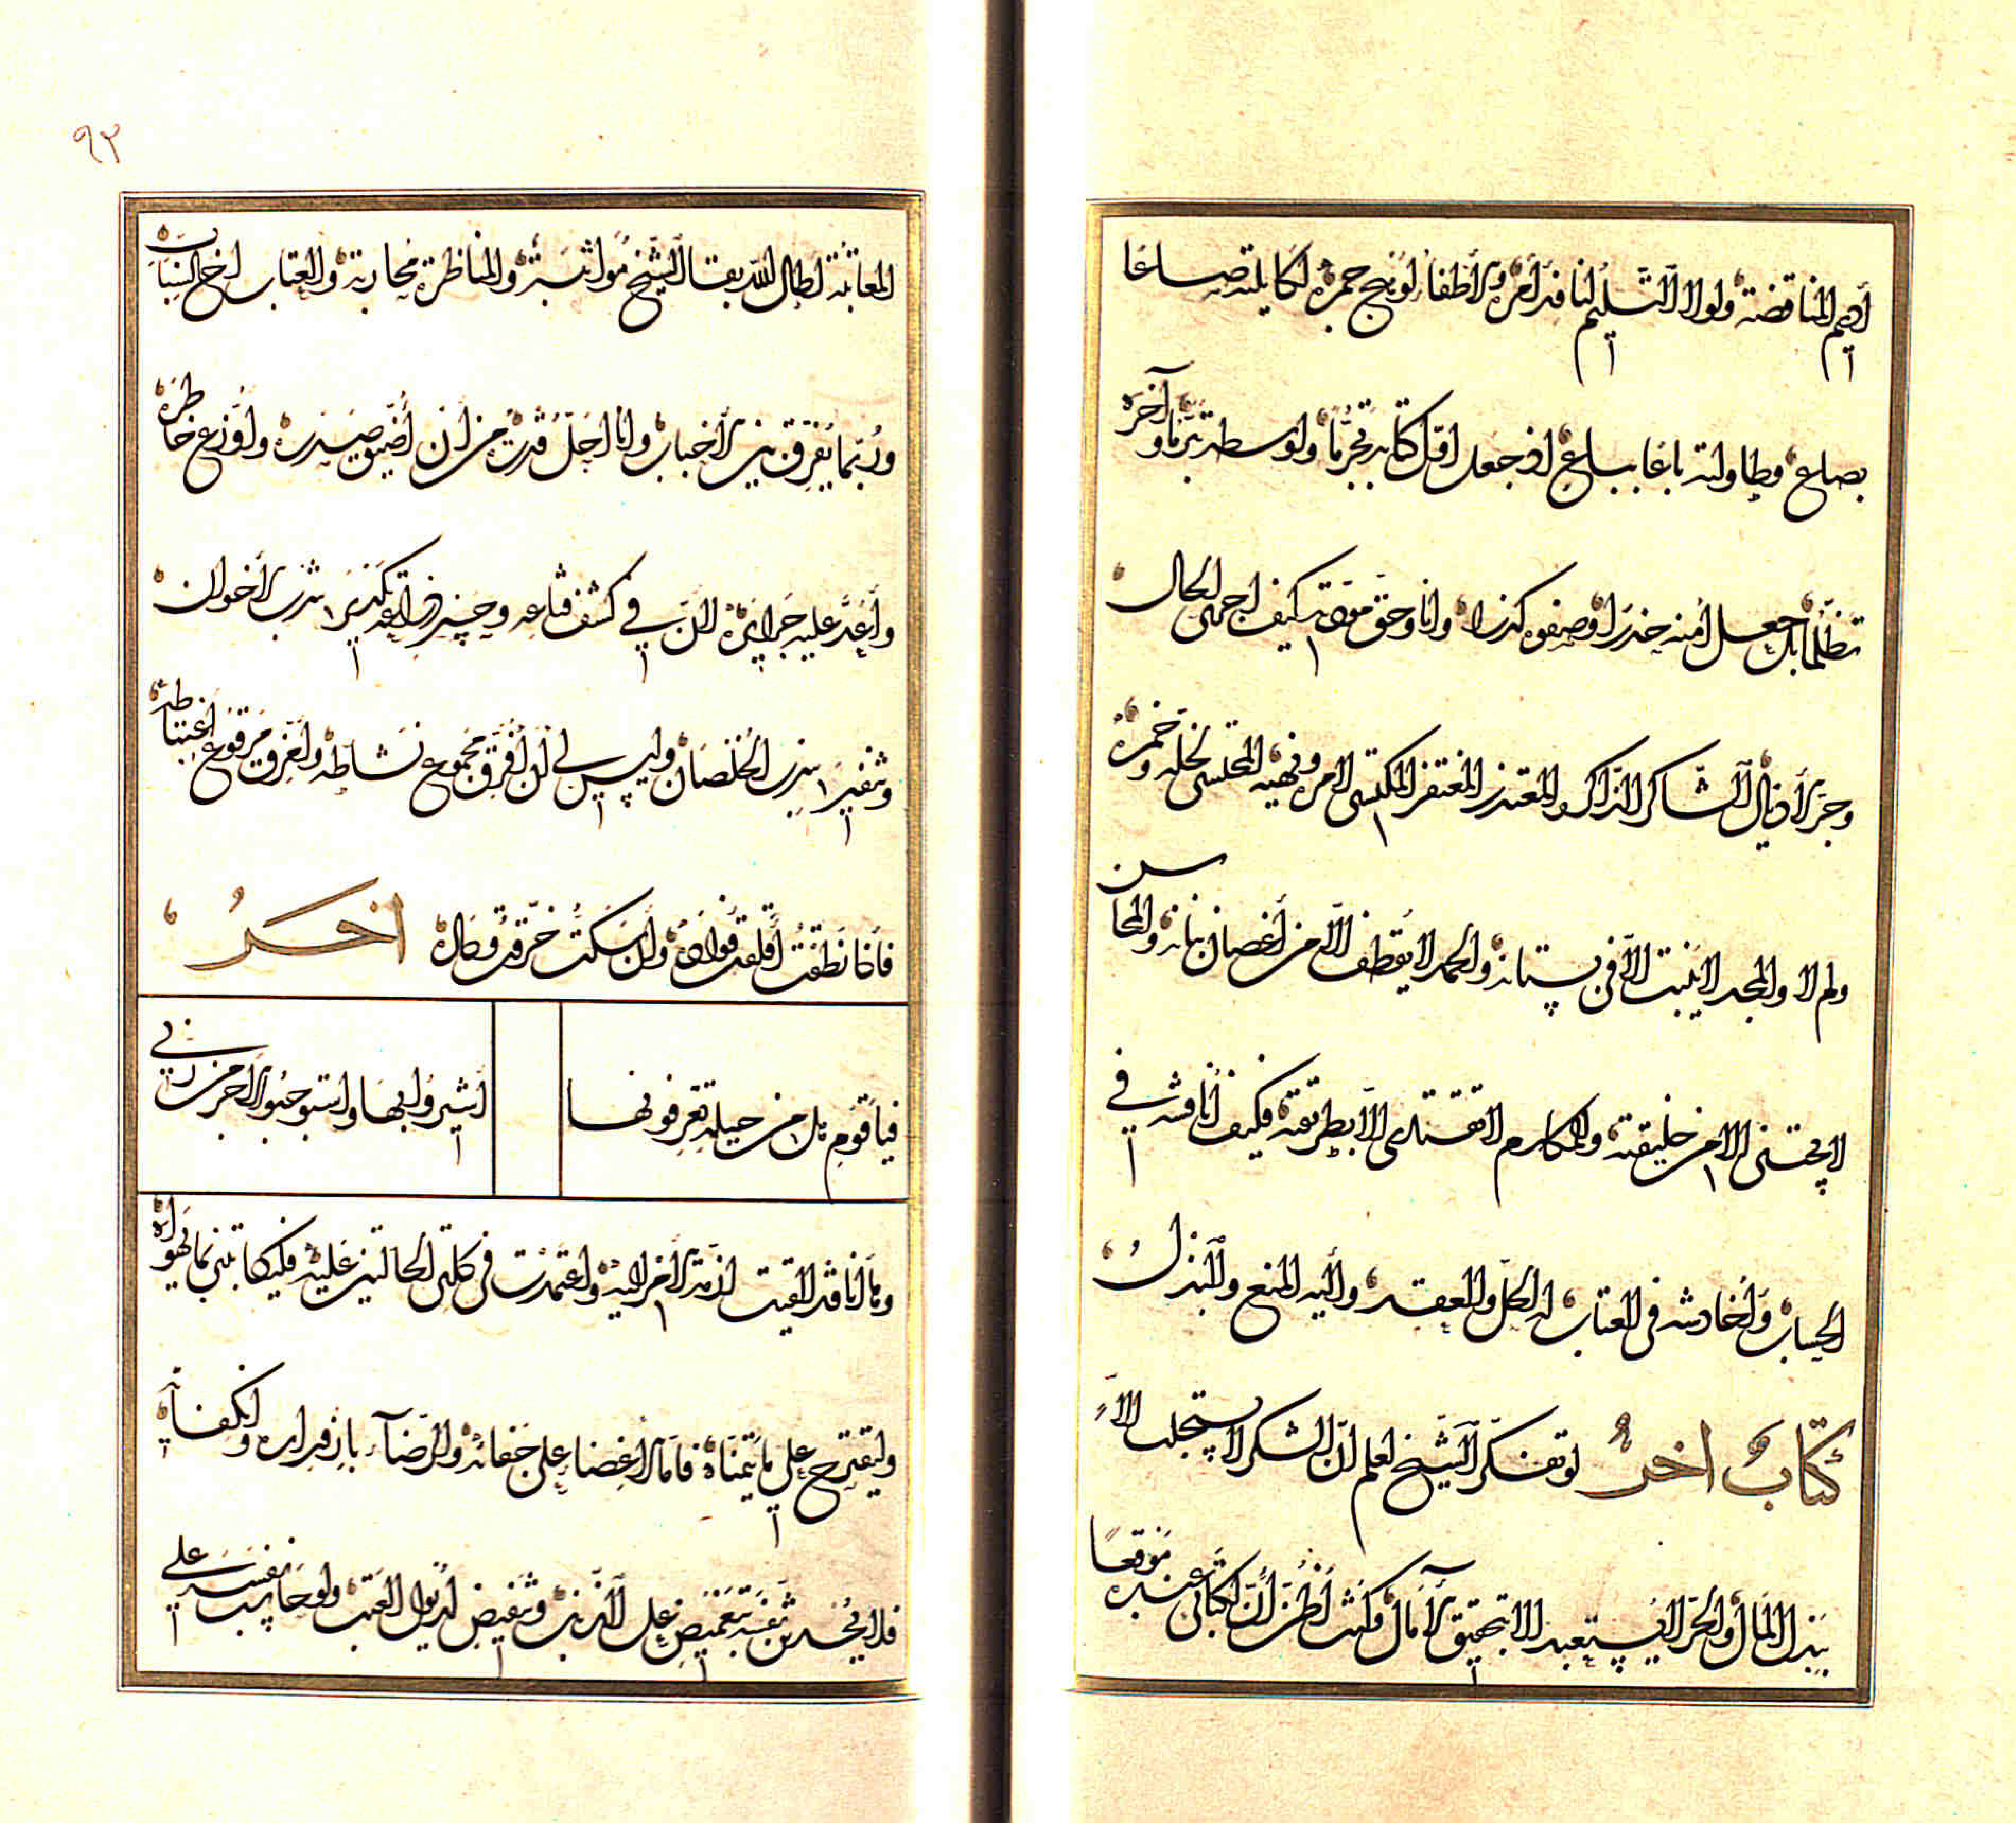 أديم المناقضة ولولا التسليم لنافذ أمره والأطفأ لوهج جمره لكايلته صاعا
بصاع وطاولته باعا بباع اذ جعل اول كتابه تجرما واوسطه تبرما وآخره
تظلما بل جعل أمنه حذرا وصفوه كدرا وانا وحق مودته كيف اجمل الحال
وجر الأذيال الشاكر الذاكر والمعتذر المغتفر المكتسى لامره ونهيه المحتسى لخله وخمره
ولم لا والمجد لا ينبت الا في بستانه والحمد لا يقطف الا من أغصان بنانه والمحاسن
لا تجتنى الا من خليقته والمكارم لا تقتدى الا بطريقته فكيف أناقشه في
الحساب وأخادشه في العتاب له الحل والعقد وأليه المنع والبذل
كتاب اخر لو تفكر الشيخ لعلم ان الشكر لا يستجلب الا
ببذل المال والحر لا يستعبد الا بتحقيق الآمال وكنت أظن أن لكتابي عنده موقعا
المعاتبة اطال الله بقا الشيخ مواثبة والمناظرة محاربة والعتاب اخ السباب
وربما يفرق بين الأحباب وانا اجل قدره من أن أضيق صدره واوزع خاطره
وأعد عليه جرائره لان في كشف قناعه وجس ذراعه تكديرا بين الأخوان
وتنفيرا بين الخلصان وليس لي أن أفرق مجموع نشاطه وأمزق مرقوع اغتباطه
فأنا نطقت أقلعت فواده وأن سكت خرقت وكاره اخر
فيا قوم هل من حيلة تعرفونها
أشيروا بها واستوجبوا الأجر من ربي
وها أنا قد القيت ازمة الأمر اليه واعتمدت في كلتى الحالتين عليه فليكاتبني بما يهواه
وليقترح على ما يتمناه فاما الأغضا على جفائه والرضآ بازوراره وانكفائه
فلا يحدثن نفسه بتغميض على الذنب وتنفيض لذيول العتب ولو حاسب نفسه على
٩٢